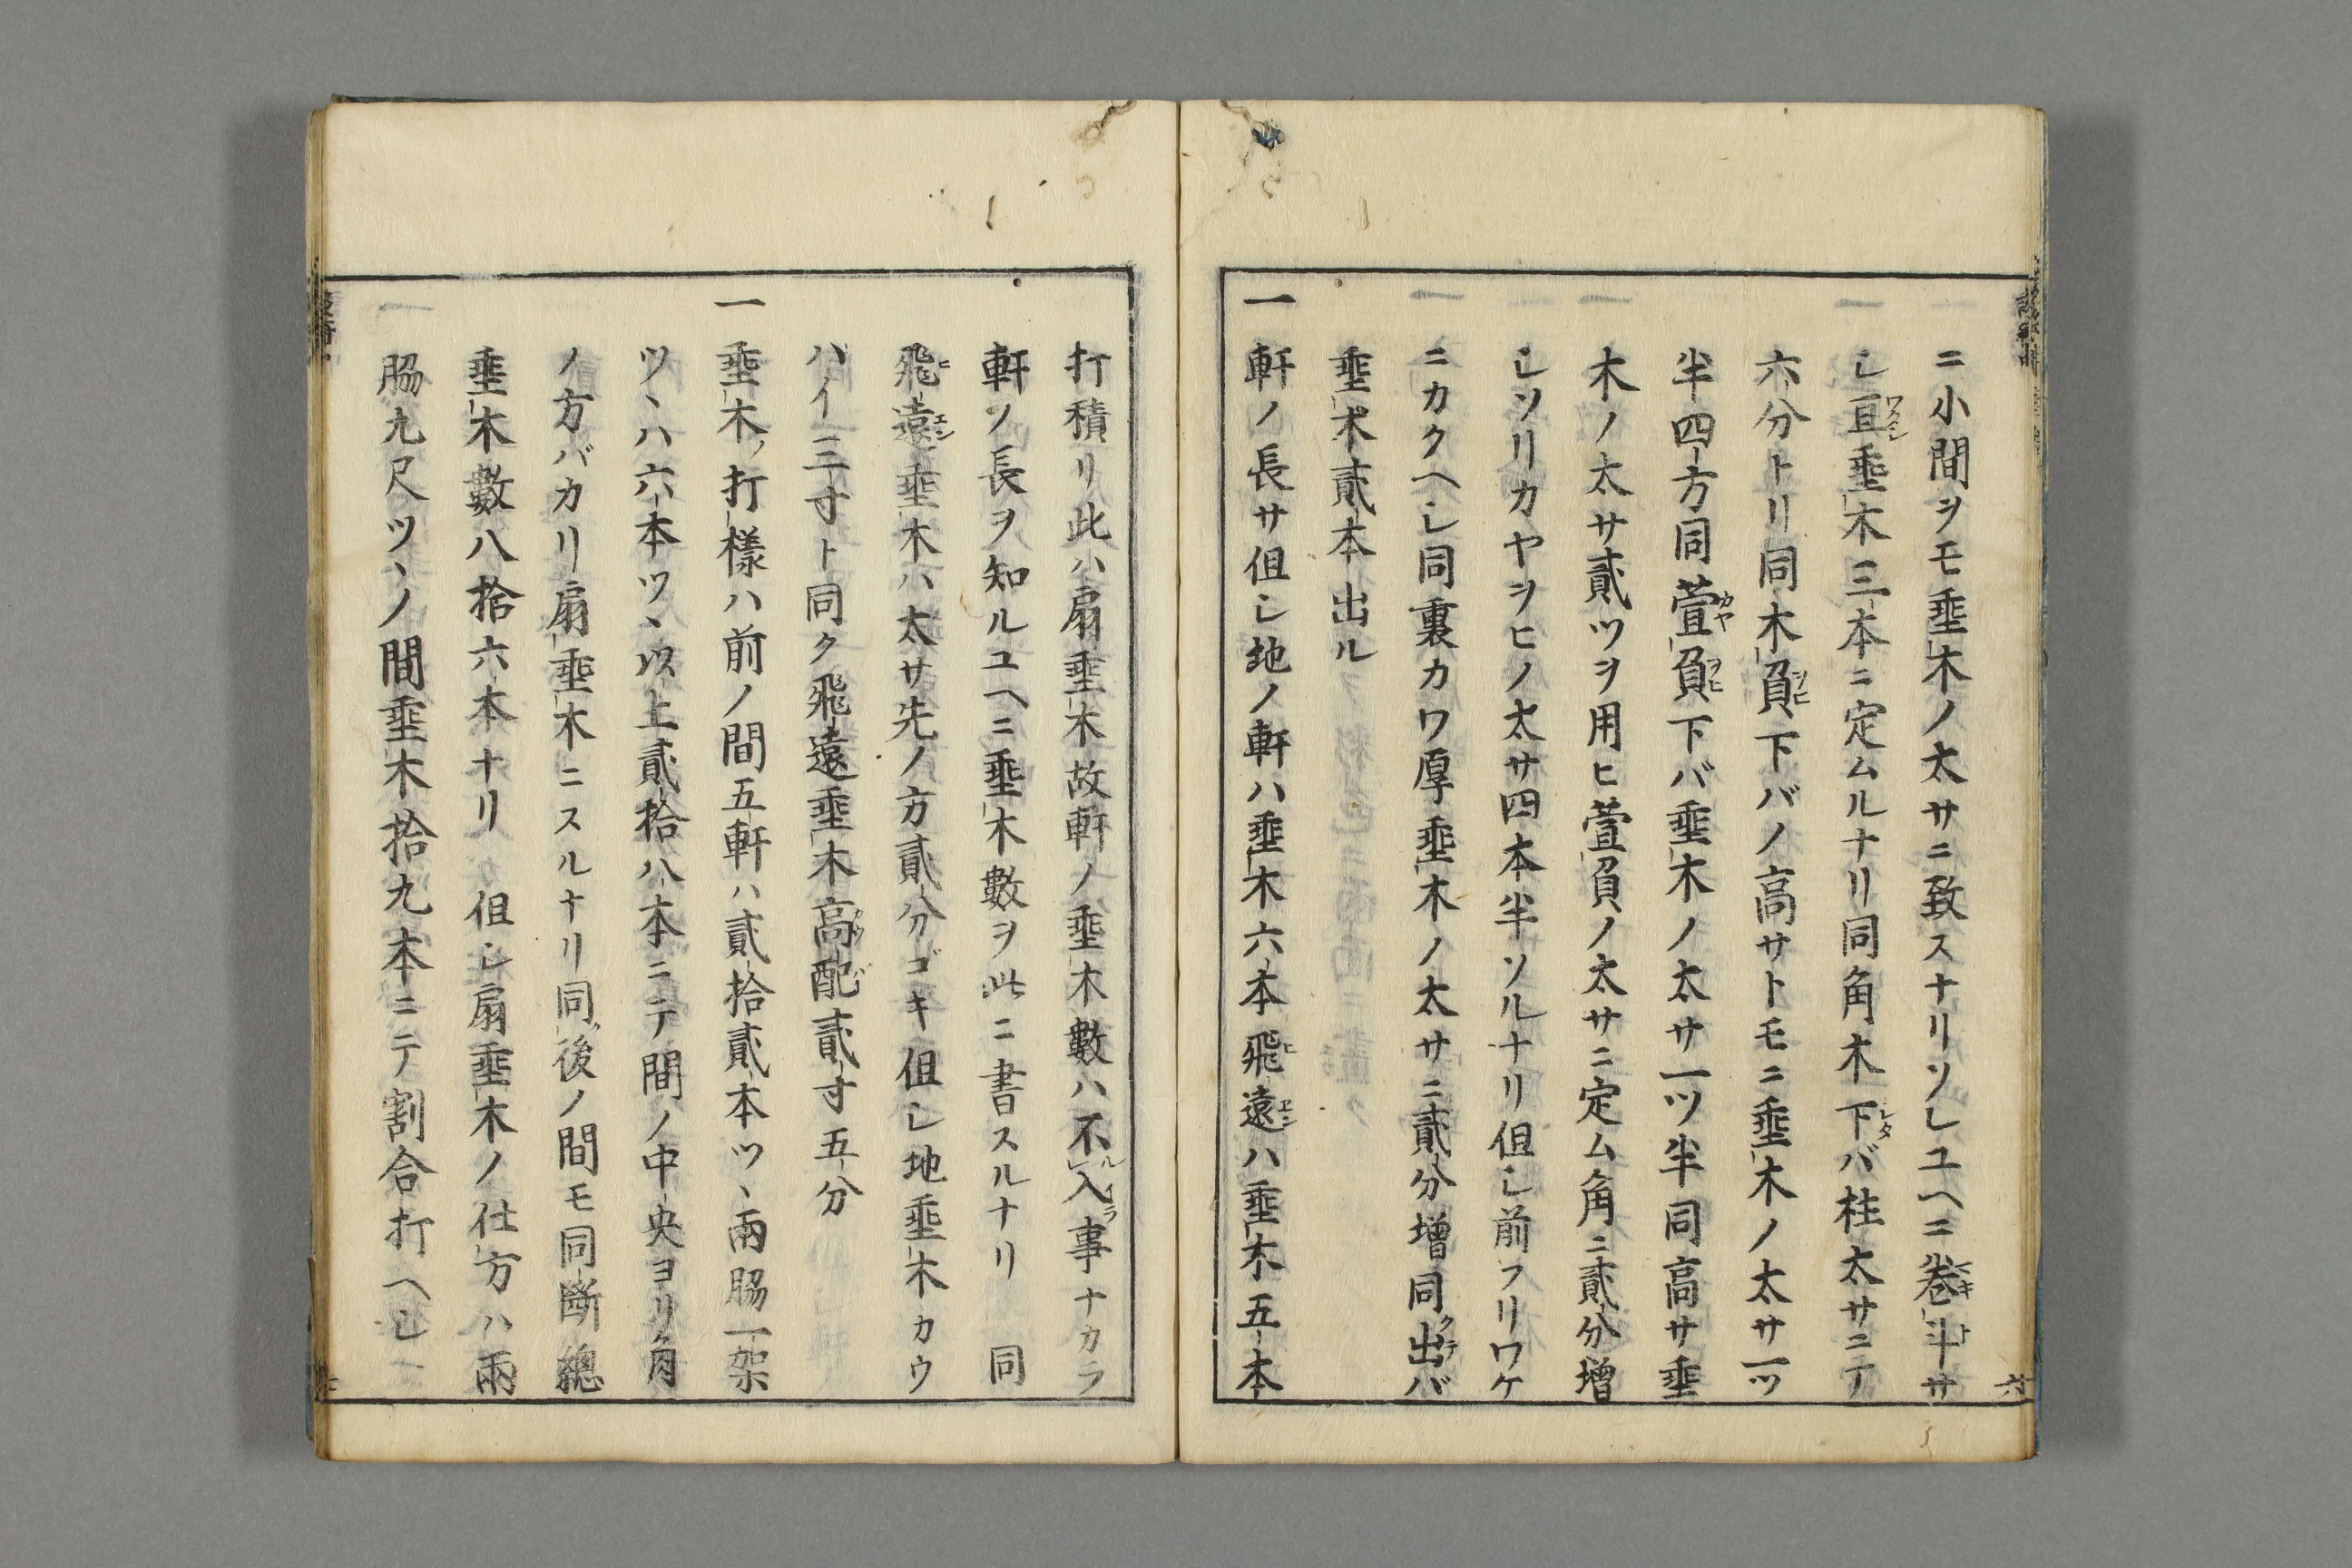 ニ小間ヲモ垂木ノ太サニ致スナリソレユヘニ巻斗サ
シ亘垂木三本ニ定ムルナリ同角木下バ柱太サニテ
六分トリ同木負下バノ高サトモニ垂木ノ太サ一ツ
半四方同萱負下バ垂木ノ太サ一ツ半同高サ垂
木ノ太サ貳ツヲ用ヒ萱負ノ太サニ定ム角ニ貳分增
シソリカヤヲヒノ太サ四本半ソルナリ但シ前フリワケ
ニカクヘシ同裏カワ厚垂木ノ太サニ貳分增同出バ
垂木貳本出ル
一軒ノ長サ但シ地ノ軒ハ垂木六本飛遠ハ垂木五本
打積リ此ハ扇垂木故軒ノ垂木數ハ不入事ナカラ
軒ノ長ヲ知ルユヘニ垂木數ヲ此ニ書スルナリ 同
飛遠垂木ハ太サ先ノ方貳分ゴキ但シ地垂木カウ
ハイ三寸ト同ク飛遠垂木高配貳寸五分
一垂木ノ打樣ハ前ノ間五軒ハ貳拾貳本ツヽ兩脇一架
ツヽハ六本ツヽ以上貳拾八本ニテ間ノ中央ヨリ角
ノ方バカリ扇垂木ニスルナリ同後ノ間モ同斷總
垂木數八拾六本ナリ 但シ扇垂木ノ仕方ハ兩
脇九尺ツヽノ間垂木拾九本ニテ割合打ヘシ
六